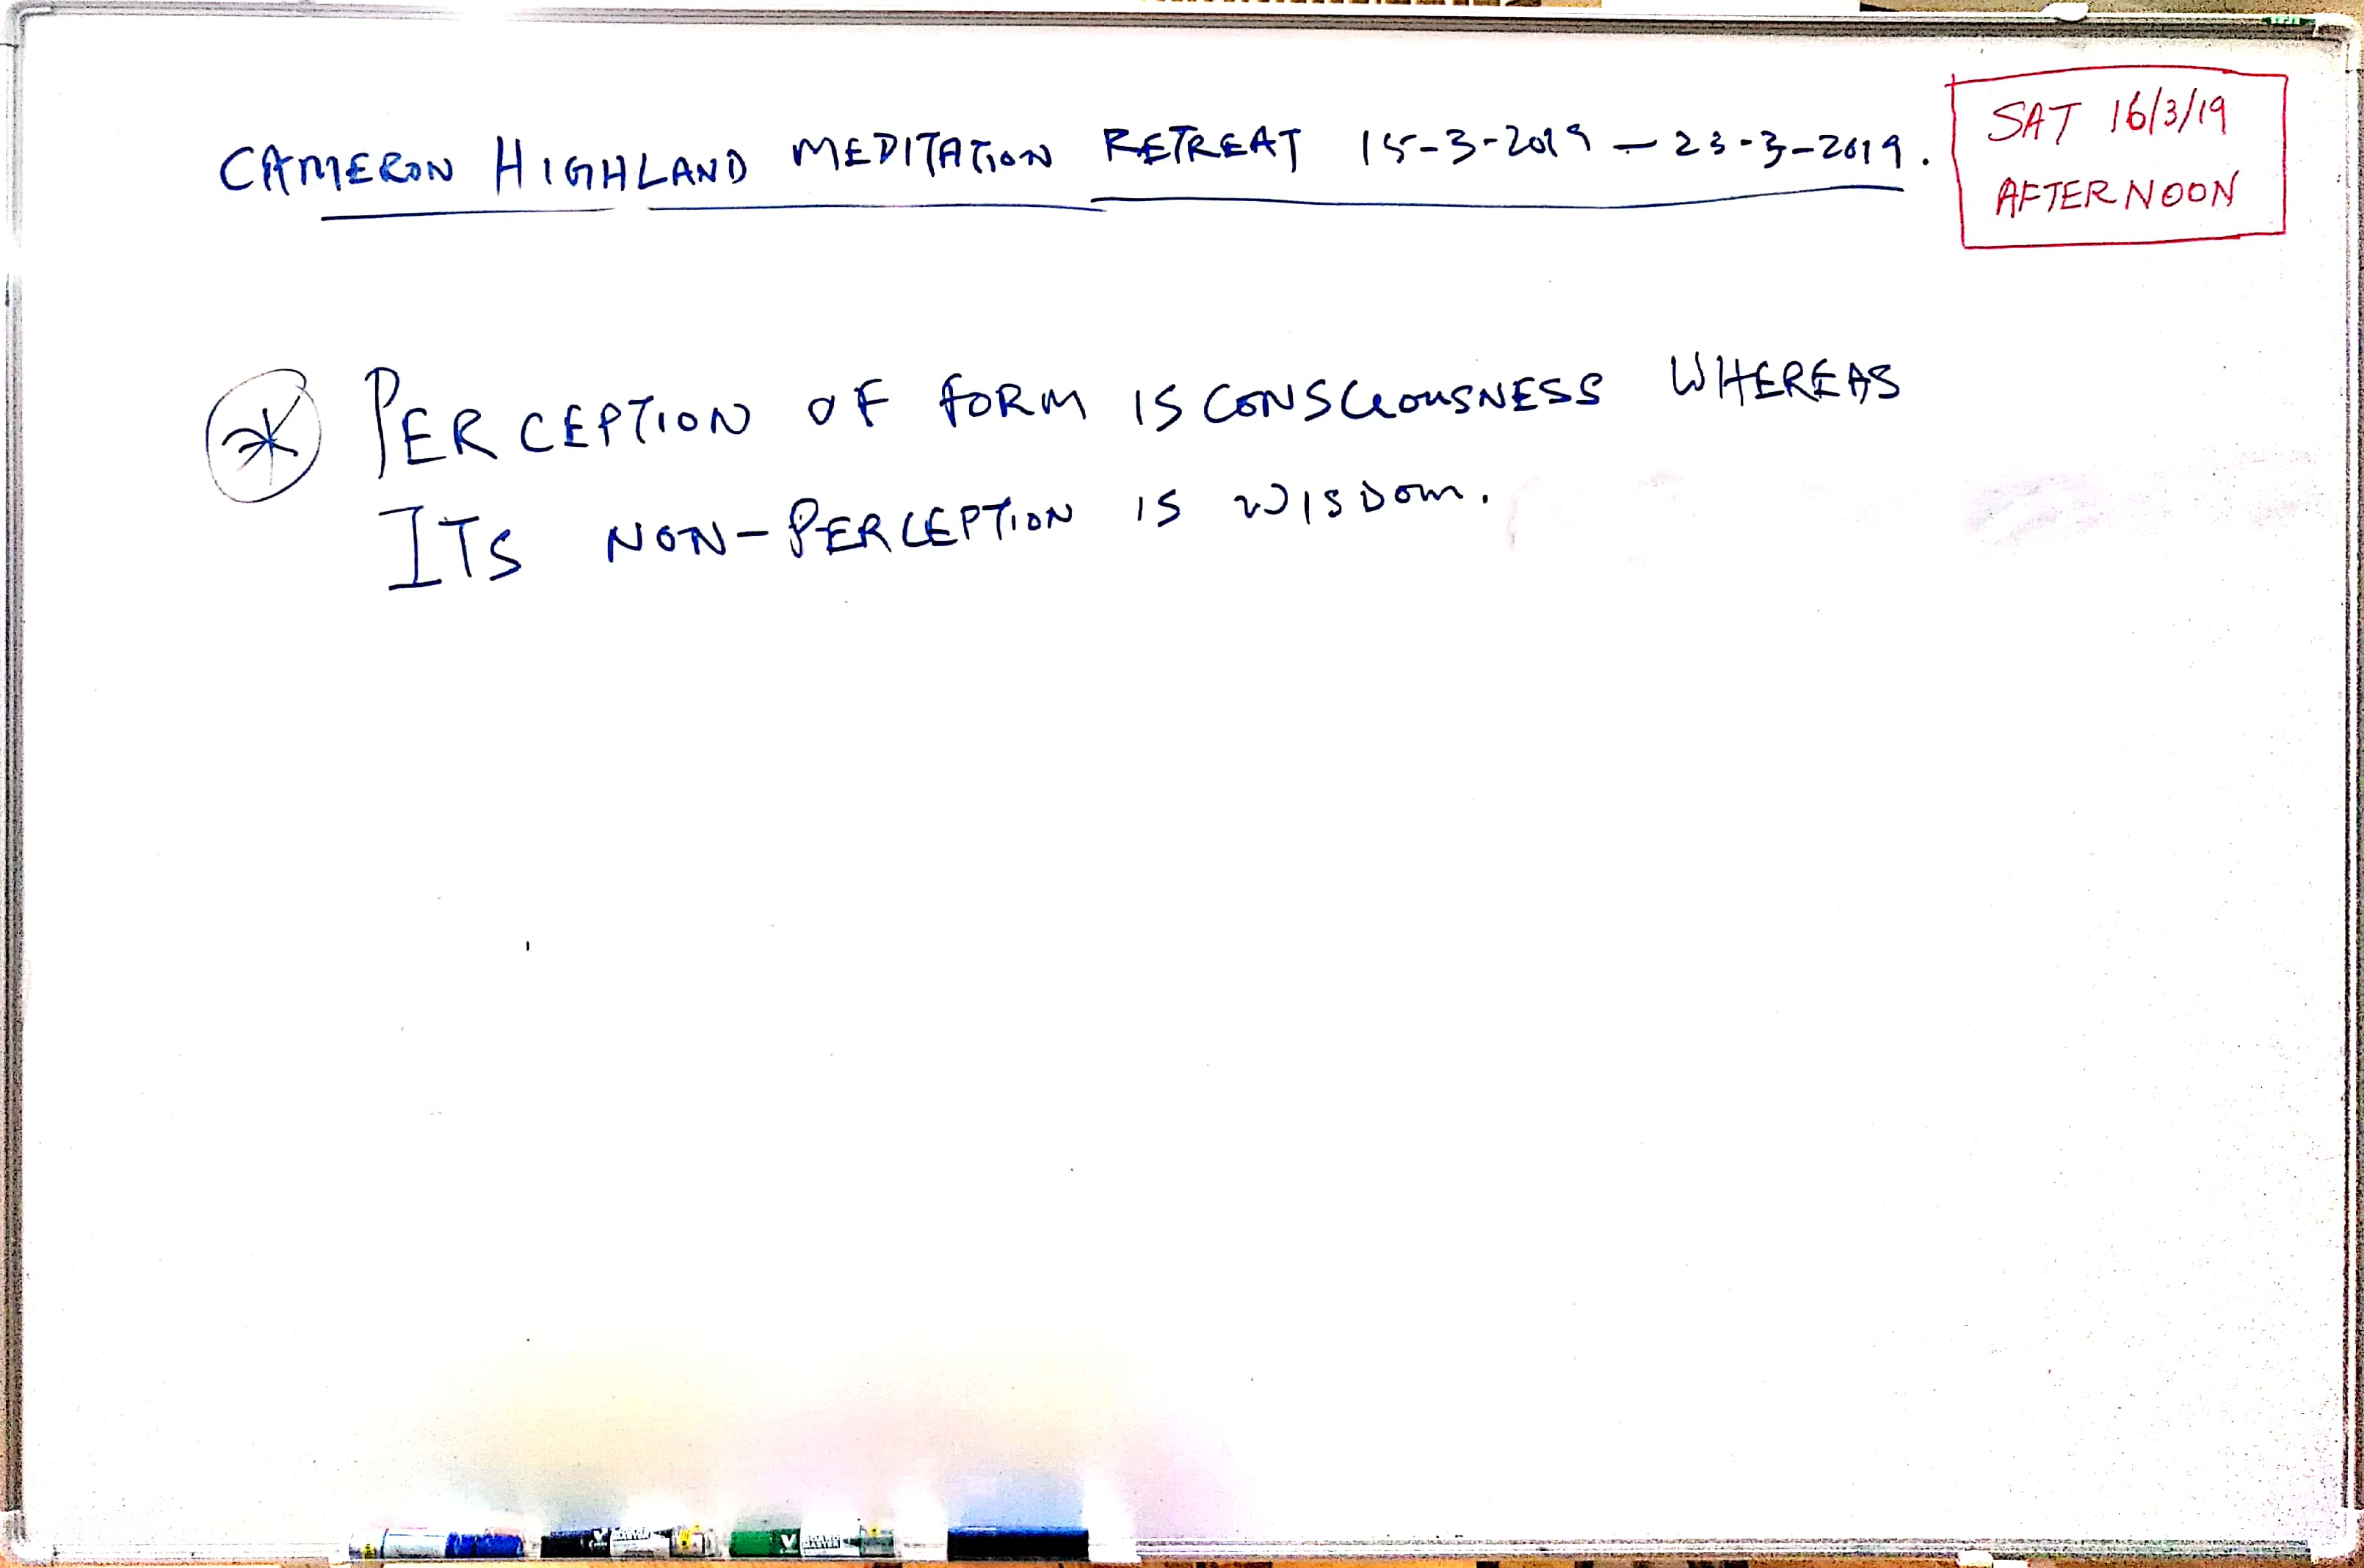 CAMERON HIGHLAND MEDITATION RETREAT 15-3-2019 – 23-3-2019.
SAT 16/3/19
AFTERNOON
PERCEPTION OF FORM IS CONSCIOUSNESS WHEREAS
ITS NON-PERCEPTION IS WISDOM.